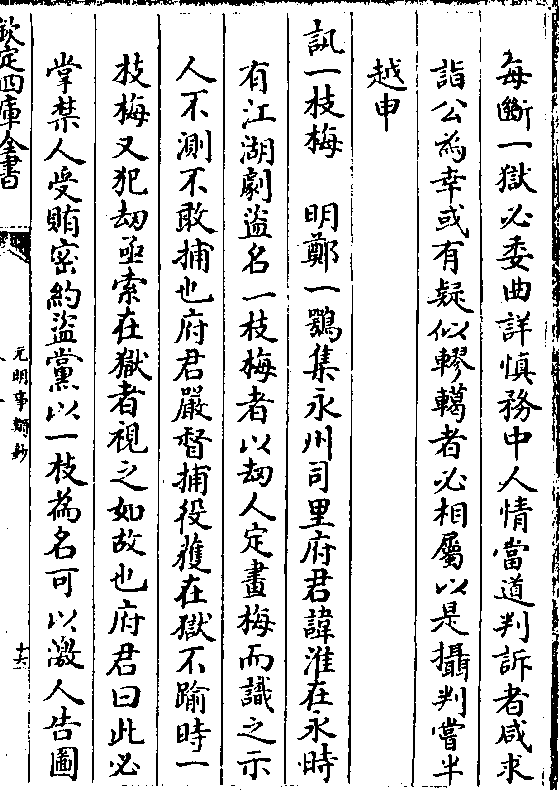 每斷一獄必委曲詳慎務中人情當道判訴者咸求
詣公為幸或有疑似轇轕者必相屬以是攝判嘗半
越申
訊一枝梅　明鄭一鵬集永州司里府君諱淮在永時
有江湖劇盜名一枝梅者以刧人定畫梅而識之示
人不測不敢捕也府君嚴督捕役獲在獄不踰時一
枝梅又犯刧亟索在獄者視之如故也府君曰此必
掌禁人受賄密約盜黨以一枝為名可以激人告圖
欽定四庫全書
元明事類鈔
十六